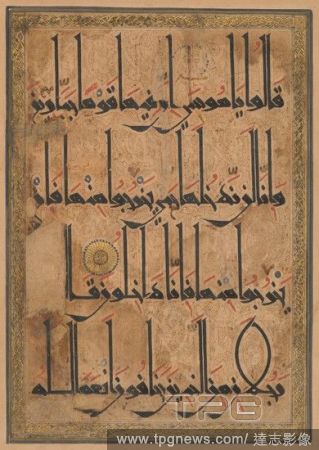 قالوا يا موسى إن فيها قوما جبارين
وإنا لن ندخلها حتى يخرجوا منها فإن
يخرجوا منها فإنا داخلون قال
رجلان من الذين يخافون أنعم الله
TPG
www.tpgnews.com / 達志影像